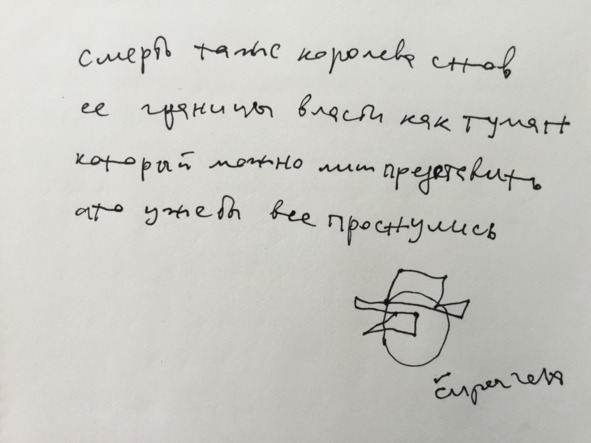 смерть также королева снов
ее границы власти как туман
который можно лиш представить
ато уже бы все проснулись